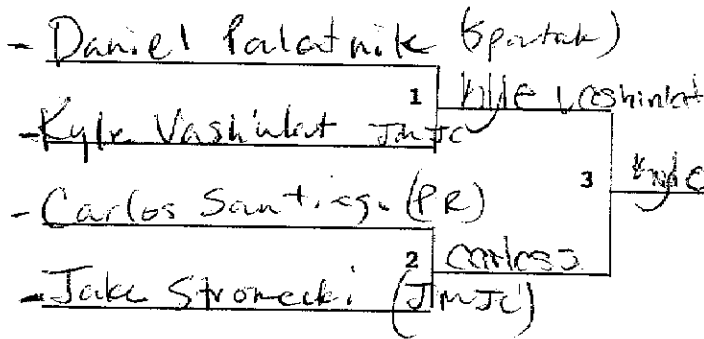 - Daniel Palatnik (Spartak)
1 Kyle Vashinkat
- Kyle Vashinkat JMJC
3 Kyle
- Carlos Santiago (PR)
2 Carlos S.
- Jake Stromecki (JMJC)